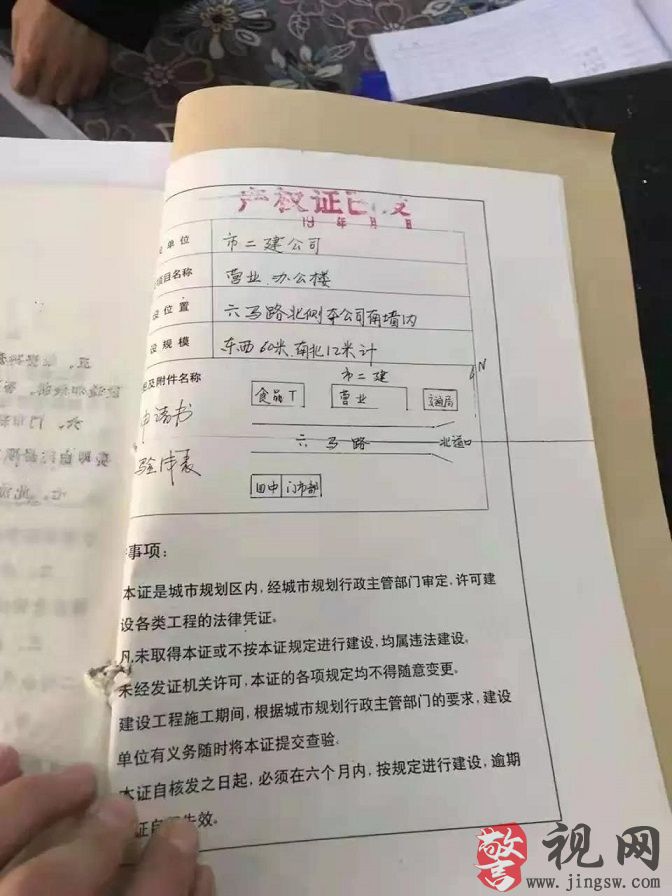 产权证已发
19 年 月 日
单位 市二建公司
项目名称 营业.办公楼
设位置 六马路北侧本公司南墙内
设规模 东西60米.南北12米计
及附件名称
申请书
验审表
市二建
N
食品厂 营业 交通局
六马路 北道口
田中 门市部
事项:
本证是城市规划区内,经城市规划行政主管部门审定,许可建
设各类工程的法律凭证。
凡未取得本证或不按本证规定进行建设,均属违法建设。
未经发证机关许可,本证的各项规定均不得随意变更。
建设工程施工期间,根据城市规划行政主管部门的要求,建设
单位有义务随时将本证提交查验。
本证自核发之日起,必须在六个月内,按规定进行建设,逾期
证自行失效。
警视网
www.jingsw.com